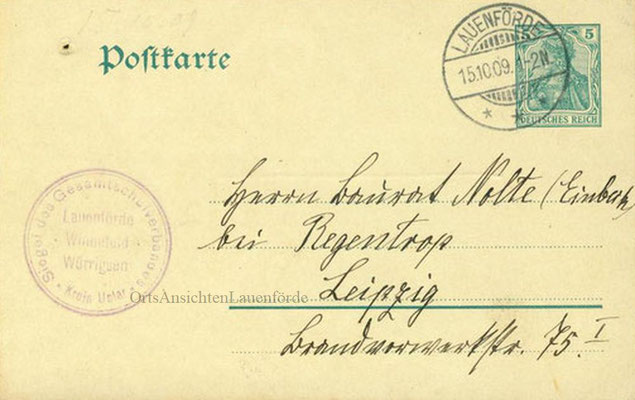 15.10.09
Postkarte
LAUENFÖRDE
15.10.09. 1-2N.
5
DEUTSCHES REICH
Siegel des Gesamtschulverbandes
Lauenförde
Würrigsen
Kreis Uslar
OrtsAnsichtenLauenförde
Herrn Baurat Nolte (Einbeck)
bei Regentrop
Leipzig
Brandvorwerkstr. 75 I